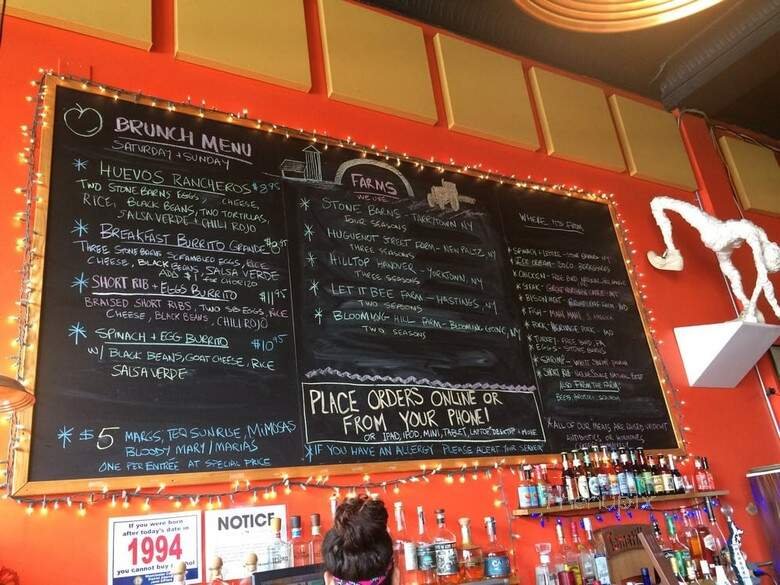 BRUNCH MENU
SATURDAY + SUNDAY
* HUEVOS RANCHEROS $9.95
TWO STONE BARNS EGGS, CHEESE,
RICE, BLACK BEANS, TWO TORTILLAS,
SALSA VERDE + CHILI ROJO
* BREAKFAST BURRITO GRANDE
THREE STONE BARNS SCRAMBLED EGGS, RICE
CHEESE, BLACK BEANS, SALSA VERDE
ADD $1 FOR CHORIZO
* SHORT RIB + EGGS BURRITO $11.95
BRAISED SHORT RIBS, TWO EGGS, RICE
CHEESE, BLACK BEANS, CHILI ROJO
* SPINACH + EGG BURRITO $10.95
W/ BLACK BEANS, GOAT CHEESE, RICE
SALSA VERDE
* $5 MARGS, TEQ SUNRISE, MIMOSAS
BLOODY MARY / MARIAS
ONE PER ENTREE AT SPECIAL PRICE
FARMS
WE USE
* STONE BARNS - TARRYTOWN, NY
FOUR SEASONS
* HUGUENOT STREET FARM - NEW PALTZ, NY
THREE SEASONS
* HILLTOP HANOVER - YORKTOWN, NY
THREE SEASONS
* LET IT BEE FARM - HASTINGS, NY
TWO SEASONS
* BLOOMING HILL FARM - BLOOMING GROVE, NY
TWO SEASONS
PLACE ORDERS ONLINE OR
FROM YOUR PHONE!
OR IPAD, IPOD, MINI, TABLET, LAPTOP, DESKTOP + MORE
* IF YOU HAVE AN ALLERGY PLEASE ALERT YOUR SERVER
WHERE IT'S FROM
* CHICKEN
* BISON MEAT
* FISH
* PORK
* TURKEY
* EGGS - STONE BARNS
* SHRIMP
* SHORT RIB
ALSO FROM THE FARM
* ALL OF OUR MEATS ARE RAISED WITHOUT
ANTIBIOTICS OR HORMONES
If you were born
after today's date in
1994
you cannot buy
NOTICE